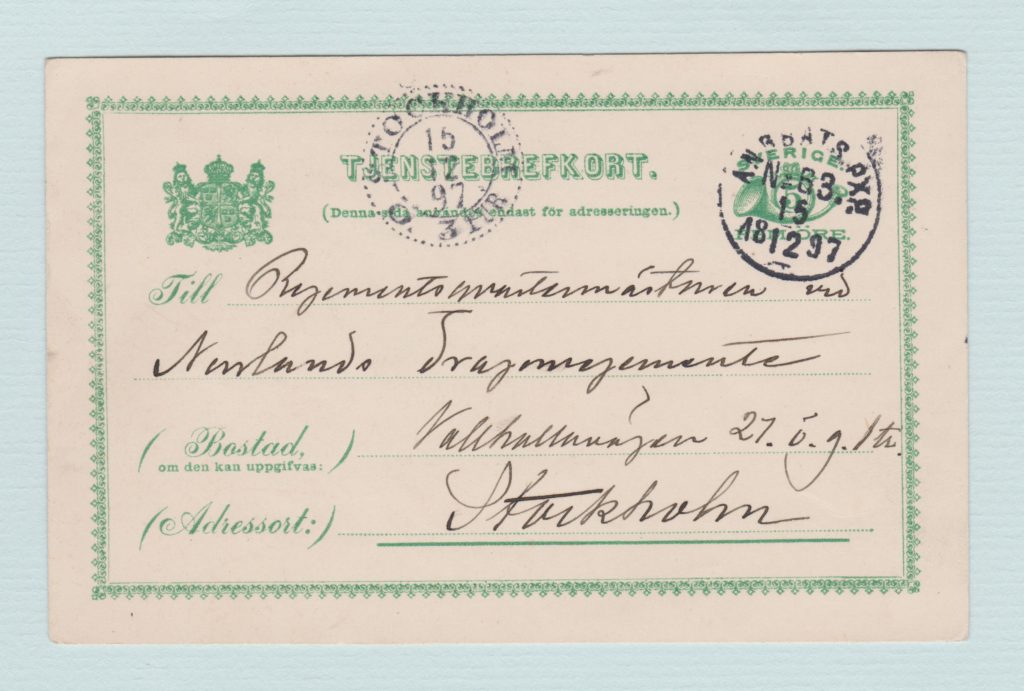 STOCKHOLM
15
12
97
3 TUR
TJENSTEBREFKORT.
(Denna sida användes endast för adresseringen.)
ÅNGBÅTS PXP
SVERIGE
No 63.
15
ÖRE.
1812 97
Till Regementsqvartermästaren vid
Norrlands Dragonregemente
(Bostad,
om den kan uppgifvas:)
Vallhallavägen 27. ö. g. 1 tr.
(Adressort:) Stockholm